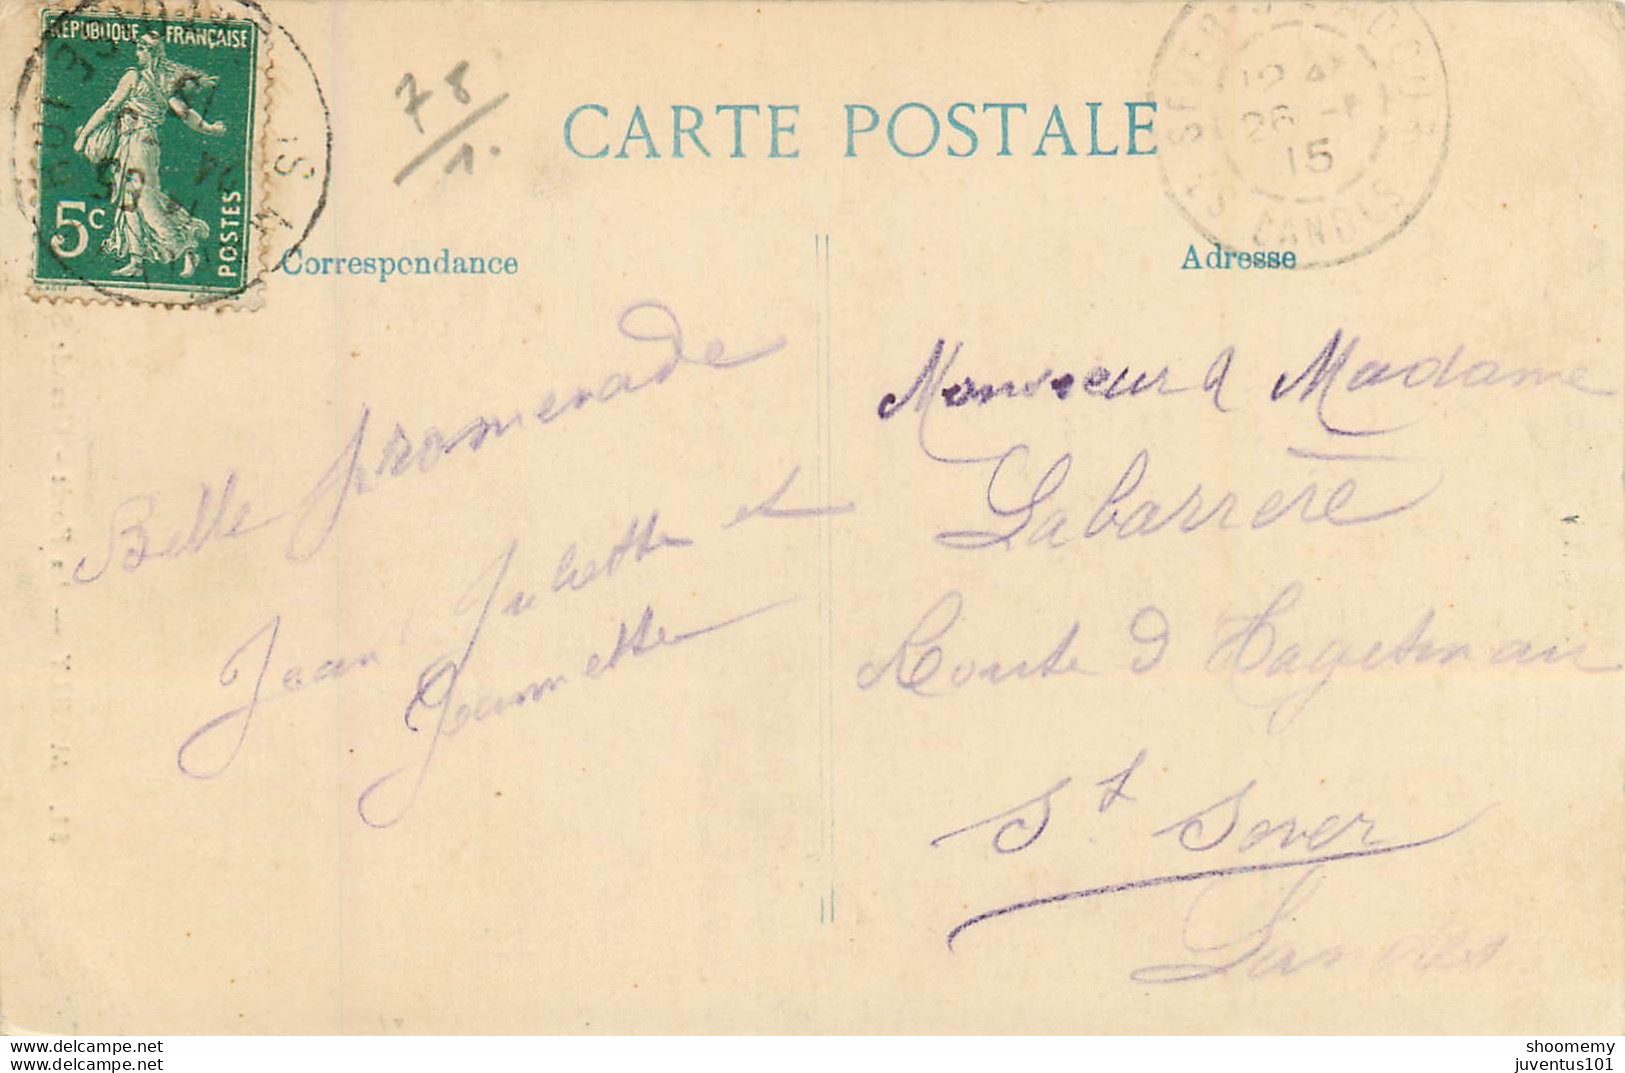 RÉPUBLIQUE FRANÇAISE
5c
POSTES
78/1.
CARTE POSTALE
12
26
15
LANDES
Correspondance
Adresse
Belle promenade
Jean Juliette et
Jeannette
Monsieur & Madame
Labarrere
Route d Hagetmau
St Sever
Landes
www.delcampe.net
www.delcampe.net
shoomemy
juventus101